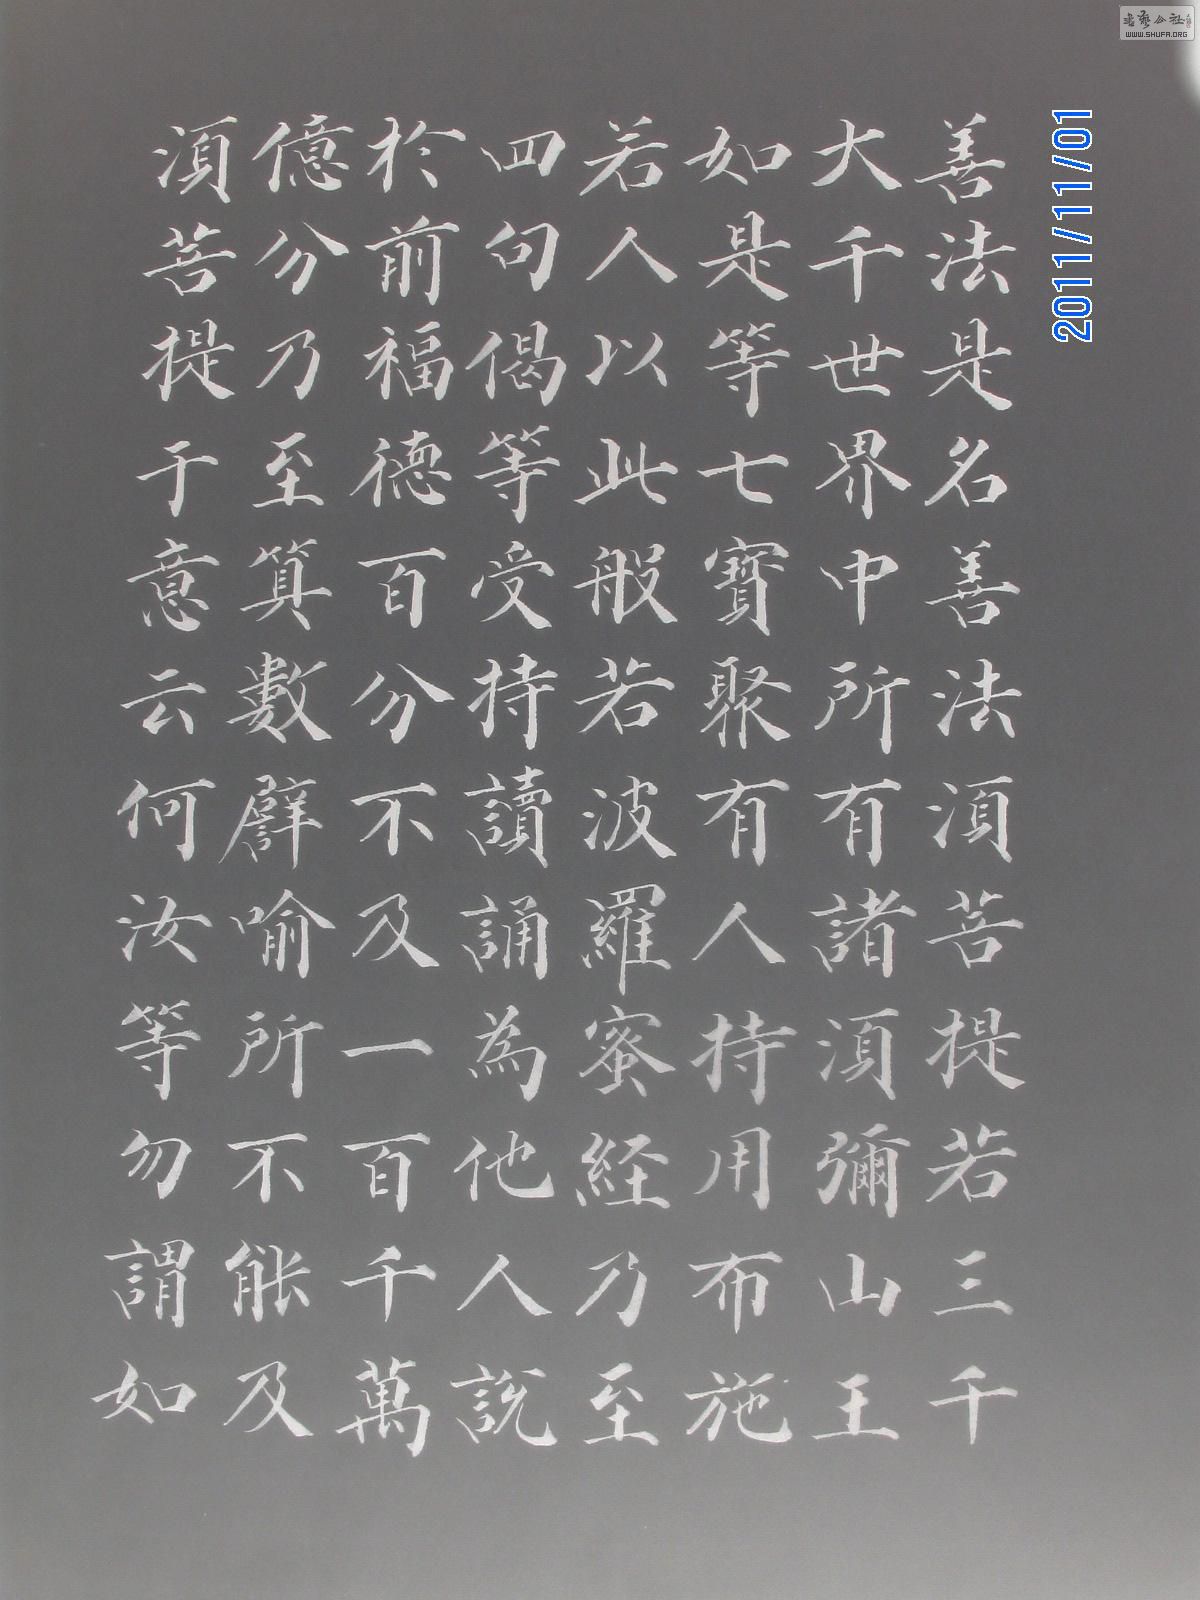 善法是名善法須菩提若三千
大千世界中所有諸須彌山王
如是等七寶聚有人持用布施
若人以此般若波羅蜜経乃至
四句偈等受持讀誦為他人說
於前福德百分不及一百千萬
億分乃至算數譬喻所不能及
須菩提于意云何汝等勿謂如
2011/11/01
书艺公社
WWW.SHUFA.ORG